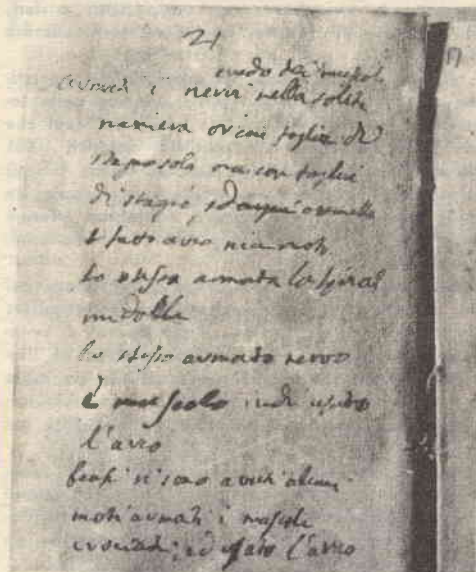 21
crudo dei muscoli
armati i nervi nella solita
maniera or con foglia di
stagno sola ora con foglia
di stagno, ed
e fatto arco niun moto
lo stesso armata la spinal
midolla
lo stesso armato nervo
e muscolo indi usato
l'arco
si sono avuti alcuni
moti armati i muscoli
crociati; ed usato l'arco